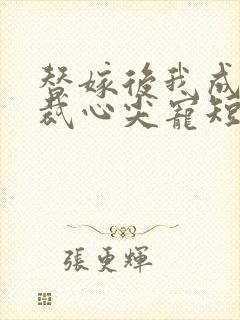 替嫁後我成
裁心尖寵短
張更輝